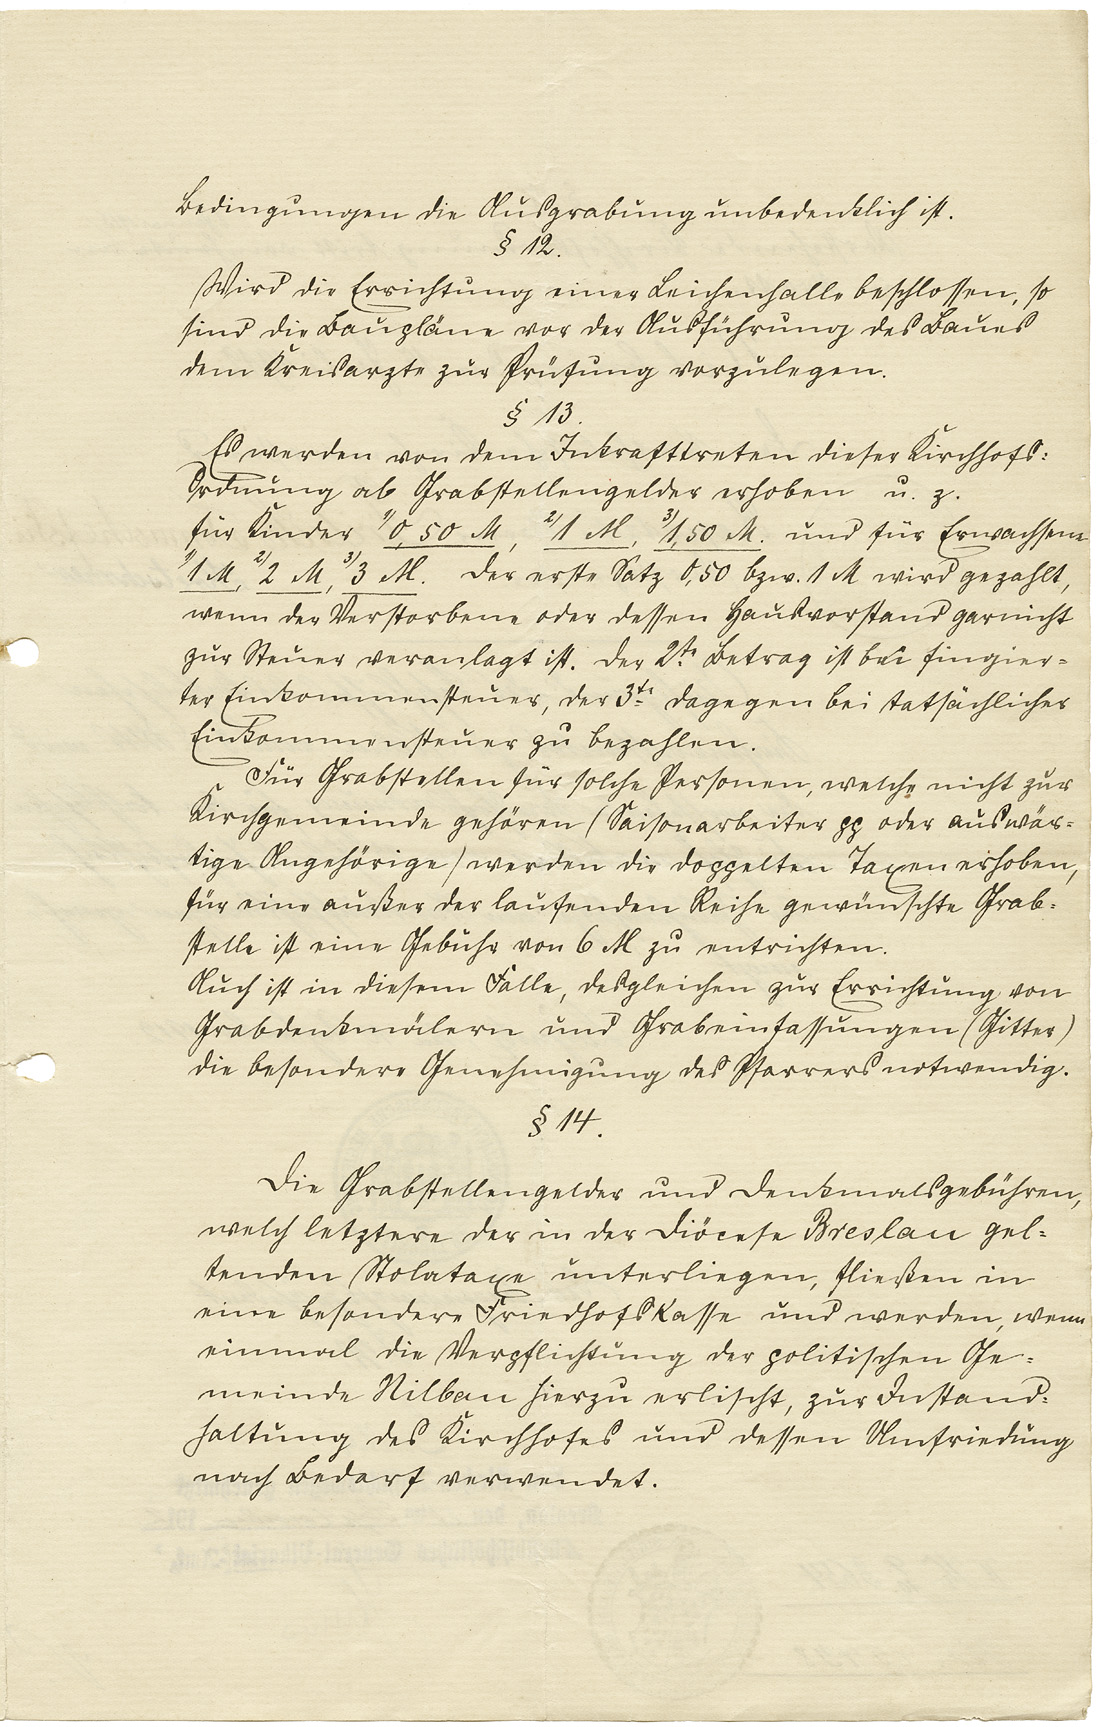 Bedingungen die Ausgrabung unbedenklich ist.
§ 12.
Wird die Errichtung einer Leichenhalle beschlossen, so
sind die Baupläne vor der Ausführung des Baues
dem Kreisarzte zur Prüfung vorzulegen.
§ 13.
Es werden von dem Inkrafttreten dieser Kirchhofs:
Ordnung ab Grabstellengelder erhoben u. z.
für Kinder 1/ 0,50 M, 2/ 1 M, 3/ 1,50 M. und für Erwachsene
1/ 1 M, 2/ 2 M, 3/ 3 M. Der erste Satz 0,50 bzw. 1 M wird gezahlt,
wenn der Verstorbene oder dessen Hausvorstand garnicht
zur Steuer veranlagt ist. Der 2te Betrag ist bei fingier=
ter Einkommensteuer, der 3te dagegen bei tatsächlicher
Einkommensteuer zu bezahlen.
Für Grabstellen für solche Personen, welche nicht zur
Kirchgemeinde gehören (Saisonarbeiter pp oder auswär=
tige Angehörige) werden die doppelten Taxen erhoben,
für eine außer der laufenden Reihe gewünschte Grab=
stelle ist eine Gebühr von 6 M zu entrichten.
Auch ist in diesem Falle, desgleichen zur Errichtung von
Grabdenkmälern und Grabeinfassungen (Gitter)
die besondere Genehmigung des Pfarrers notwendig.
§ 14.
Die Grabstellengelder und Denkmalsgebühren,
welch letztere der in der Diöcese Breslau gel=
tenden Stolataxe unterliegen, fließen in
eine besondere Friedhofskasse und werden, wenn
einmal die Verpflichtung der politischen Ge=
meinde Nilbau hierzu erlischt, zur Instand=
haltung des Kirchhofes und dessen Umfriedung
nach Bedarf verwendet.